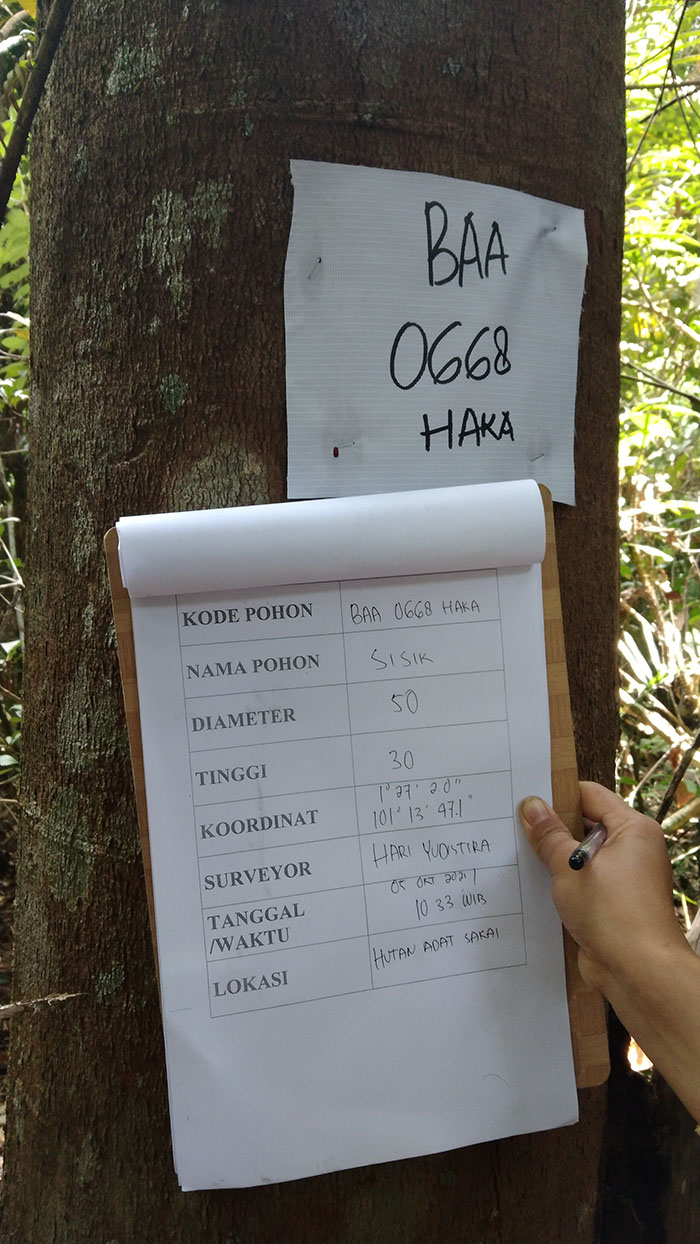 BAA
0668
HAKA
KODE POHON BAA 0668 HAKA
NAMA POHON SISIK
DIAMETER 50
TINGGI 30
KOORDINAT 1° 27' 20"
101° 13' 47.1"
SURVEYOR HARI YUDISTIRA
TANGGAL 05 OKT 2021
/WAKTU 10 33 WIB
LOKASI HUTAN ADAT SAKAI